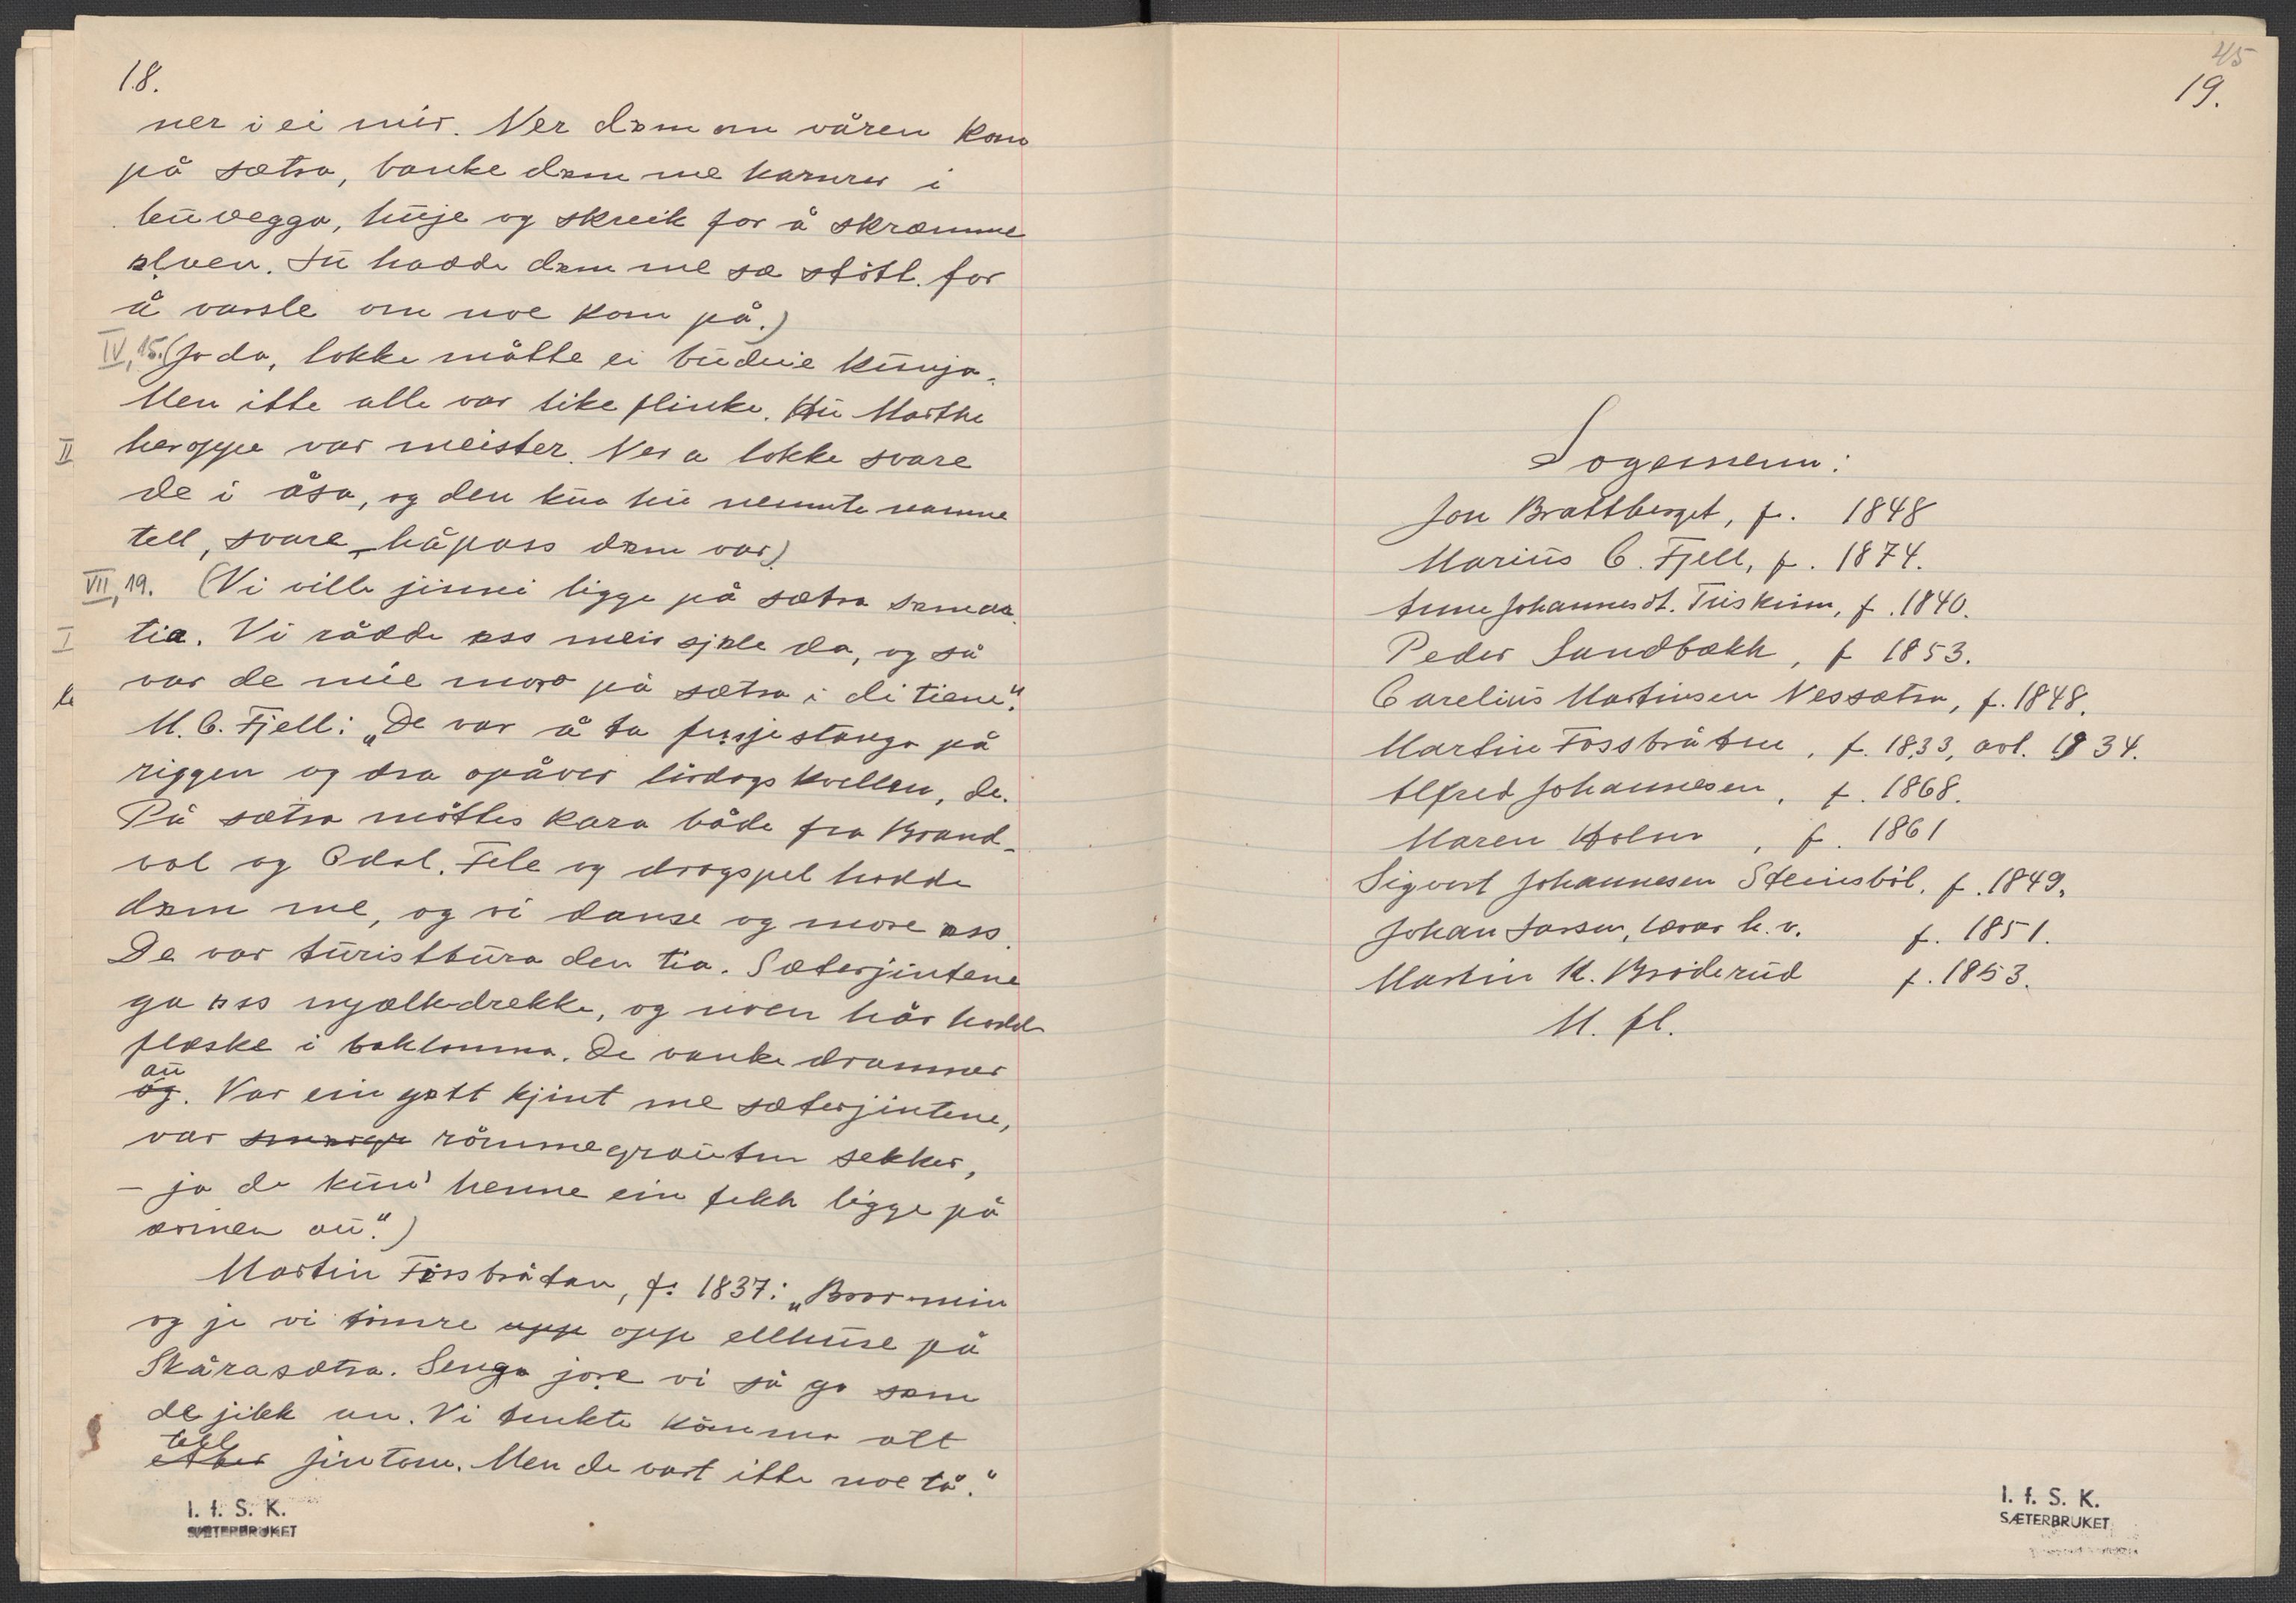 18.
ner i ei mir. Ner dem om våren kom
på sætra, banke dem me harver i
buvegga, huje og skreik for å skræmme
ælven. Lu hadde dem me sæ støtt for
å varsle om noe kom på.)
IV, 15. (Jo da, lokke måtte ei budeie kunja.
Men itte alle var like flinke. Hu Marthe
II heroppe var meister. Ner a lokke svare
de i åsa, og den kua hu nemnte namne
tell, svare, håpass dem var)
VII, 19. (Vi ville jinni ligge på sætra somda
I tia. Vi rådde oss meir sjøle da, og så
var de mie moro på sætra i di tiene".
M. C. Fjell: „De var å ta fersjestanga på
riggen og dra opåver lirdagskvellen, de.
På sætra møttes kara både fra Brand-
val og Odal. Fele og dragspel hadde
dem me, og vi danse og more oss.
De var turistbura den tia. Sæterjintene
ga oss mjølkedrekke, og noen hår hadde
flaske i baklomma. De vanke drammer
au
óg. Var ein gott kjint me sæterjintene,
var rømmegrauten sekker,
– ja de kunn' henne ein fekk ligge på
armen au".)
Martin Fossbråtan, f. 1837: „Bror min
og je vi timre opp opp ellhuse på
Skårasætra. Senga jore vi så go som
de jikk an. Vi tenkte komma att
tell
etter jintom. Men de vart itte noe tå."
I. f. S. K.
SÆTERBRUKET
45
19.
Sogemenn:
Jon Brattberget, f. 1848
Marius C. Fjell, f. 1874.
Anne Johannesdt. Tuskinn, f. 1840.
Peder Sandbækk, f 1853.
Carelius Martinsen Nessætra, f. 1848.
Martin Fossbråten, f. 1833, avl. 1934.
Alfred Johannesen, f. 1868.
Maren Holm, f. 1861
Sigvart Johannesen Steinsbøl, f. 1849.
Johan Larsen, lærar h. v. f. 1851.
Martin K. Broderud f. 1853.
M. fl.
I. f. S. K.
SÆTERBRUKET